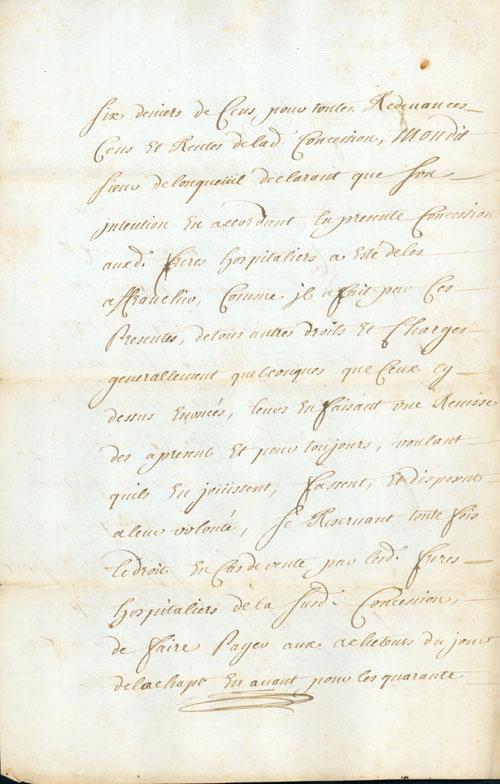 Six deniers de Cens, pour toutes Redevances
Cens Et Rentes delad. Concession, Mondit
Sieur delongueüil déclarant que Son
intention En accordant la presente Concession
auxd. freres hospitaliers a Esté deles
affranchir, Comme jl a fait par Ces
Presentes, detous autres droits Et Charges
generallement quelconques que Ceux cy
dessus Enoncés, leurs En faisant une Remise
des apresent Et pour toujours, voulant
quils En joüissent, fassent, Et disposent
aleur volonté, Se Reservant toute fois
le droit En Cas devente par lesd. freres
hospitaliers de la Susd. Concession,
de faire Payer aux acheteurs du jour
delachapt En avant pour les quarante